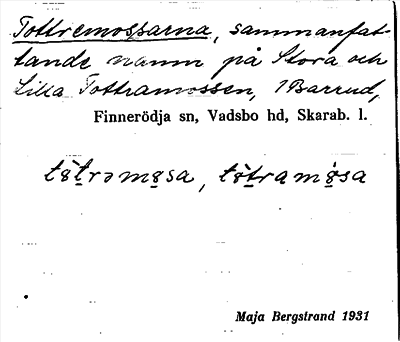 Tottremossarna, sammanfat-
tande namn på Stora och
Lilla Tottramossen, 1 Barrud,
Finnerödja sn, Vadsbo hd, Skarab. l.
tòtrəmosa, tòtramòsa
Maja Bergstrand 1931